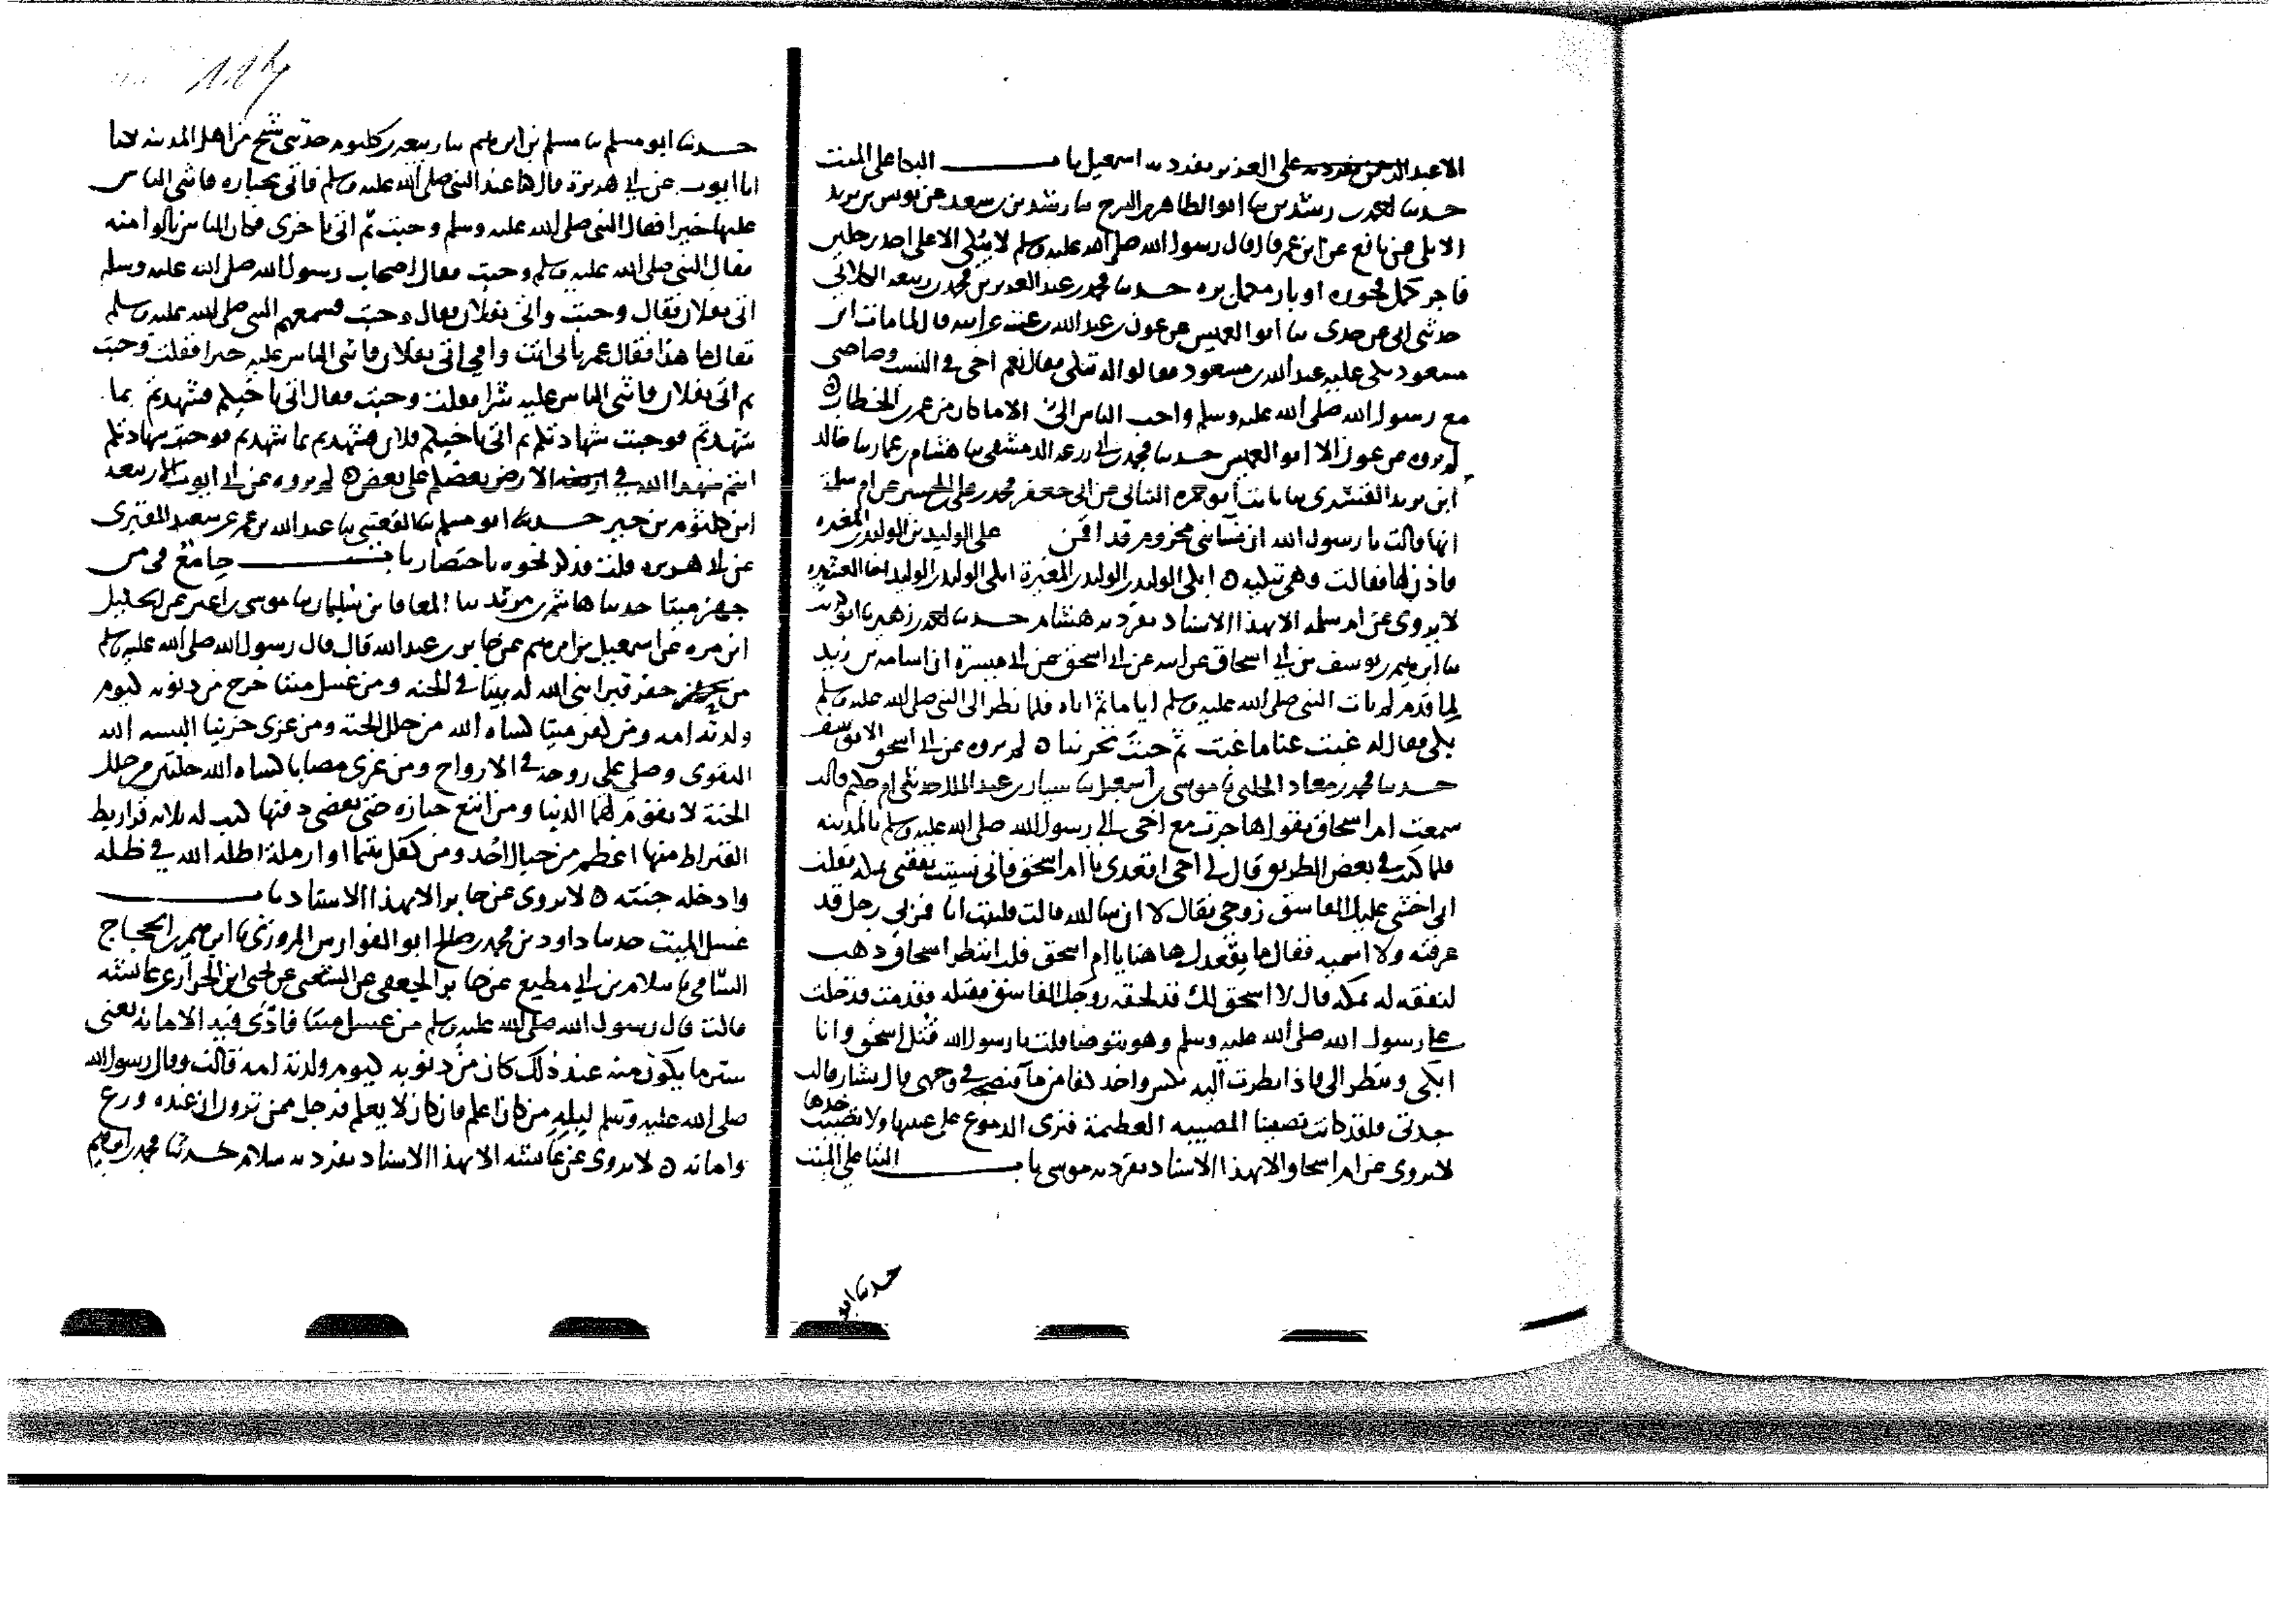 الا عبد العزيز تفرد به اسمعيل باب البكا على الميت
حدثنا احمد بن رشدين ثنا ابو الطاهر بن السرح ثنا رشدين بن سعد عن يونس بن يزيد
الايلي عن نافع عن ابن عمر قال قال رسول الله صلى الله عليه وسلم لا يبكى الا على احد رجلين
فاجر مكمل فجوره او بار مكمل بره حدثنا محمد بن عبد العزيز بن محمد بن ربيعه الكلابي
حدثني ابي عن جدي ثنا ابو العميس عن عون بن عبد الله بن عتبه عن ابيه قال لما مات ابن
مسعود بكى عليه عبد الله بن مسعود فقالوا له تبكي فقال نعم اخي في النسب وصاحبي
مع رسول الله صلى الله عليه وسلم واحب الناس الي الا ما كان من عمر بن الخطاب ه
لم يروه عن عون الا ابو العميس حدثنا محمد بن ابي زرعه الدمشقي ثنا هشام بن عمار ثنا خالد
ابن يزيد القشيري ثنا ثابت ابو حمزه الثمالي عن ابي جعفر محمد بن علي بن الحسين عن ام سلمة
انها قالت يا رسول الله ان نسا بني مخزوم قد اقمن على الوليد بن الوليد بن المغيره
فاذن لها فقالت وهي تبكيه ه ابكي الوليد بن الوليد بن المغيرة ابكي الوليد بن الوليد اخا العشيره
لا يروى عن ام سلمه الا بهذا الاسناد تفرد به هشام حدثنا احمد بن زهير ثنا ابو كريب
ثنا ابرهيم بن يوسف بن ابي اسحاق عن ابيه عن ابي اسحق عن ابي ميسرة ان اسامه بن زيد
لما قدم لم يات النبي صلى الله عليه وسلم اياما ثم اتاه فلما نظر الى النبي صلى الله عليه وسلم
بكى فقال له غبت عنا ما غبت ثم جئت تحزننا ه لم يروه عن ابي اسحق الا يوسف
حدثنا محمد بن معاذ الحلبي ثنا موسى بن اسمعيل ثنا بشار بن عبد الملك حدثتني ام حكيم قالت
سمعت ام اسحاق تقول هاجرت مع اخي الى رسول الله صلى الله عليه وسلم بالمدينه
فلما كنت في بعض الطريق قال لي اخي اقعدي يا ام اسحق فاني نسيت نفقتي بمكه فقلت
اني اخشى عليك الفاسق زوجي فقال لا ان شا الله قالت فلبثت اياما فمر بي رجل قد
عرفته ولا اسميه فقال ما يقعدك هاهنا يا ام اسحق قلت انتظر اسحاق ذهب
لنفقه له بمكه قال لا اسحق لك قد لحقه زوجك الفاسق فقتله فقدمت فدخلت
على رسول الله صلى الله عليه وسلم وهو يتوضا فقلت يا رسول الله قتل اسحق وانا
ابكي وينظر الي فاذا نظرت اليه نكس واخذ كفا من ما فنضحه في وجهي قال بشار قالت
جدتي فلقد كانت تصيبنا المصيبه العظيمة فترى الدموع على عينيها ولا تصيب خدها
لا يروى عن ام اسحاق الا بهذا الاسناد تفرد به موسى باب الثنا على الميت
حدثنا ابو
حدثنا ابو مسلم ثنا مسلم بن ابرهيم ثنا ربيعه بن كلثوم حدثني شيخ من اهل المدينه
ابا ايوب عن ابي هريرة قال كنا عند النبي صلى الله عليه وسلم فاتي بجنازه فاثنى الناس
عليها خيرا فقال النبي صلى الله عليه وسلم وجبت ثم اتي باخرى فكان الناس نالوا منه
فقال النبي صلى الله عليه وسلم وجبت فقال اصحاب رسول الله صلى الله عليه وسلم
اتي بفلان فقال وجبت واتي بفلان فقال وجبت فسمعهم النبي صلى الله عليه وسلم
فقال ما هذا فقال عمر بابي انت وامي اتي بفلان فاثنى الناس عليه خيرا فقلت وجبت
ثم اتي بفلان فاثنى الناس عليه شرا فقلت وجبت فقال اتي باخيكم فشهدتم بما
شهدتم فوجبت شهادتكم ثم اتي باخيكم فلان فشهدتم بما شهدتم فوجبت شهادتكم
انتم شهدا الله في الارض بعضكم على بعض ه لم يروه عن ابي ايوب الا ربيعه
ابن كلثوم بن جبر حدثنا ابو مسلم ثنا القعنبي ثنا عبد الله بن عمر عن سعيد المقبري
عن ابي هريره قلت فذكر نحوه باختصار باب جامع في من
جهز ميتا حدثنا هاشم بن مرثد ثنا المعافا بن سليمان ثنا موسى بن اعين عن الخليل
ابن مره عن اسمعيل بن ابرهيم عن جابر بن عبد الله قال قال رسول الله صلى الله عليه وسلم
من حفر قبرا بنى الله له بيتا في الجنه ومن غسل ميتا خرج من ذنوبه كيوم
ولدته امه ومن كفن ميتا كساه الله من حلل الجنه ومن عزى حزينا البسه الله
التقوى وصلى على روحه في الارواح ومن عزى مصابا كساه الله حلتين من حلل
الجنة لا يقوم لهما الدنيا ومن اتبع جنازه حتى يقضى دفنها كتب له ثلاثه قراريط
القيراط منها اعظم من جبل احد ومن كفل يتيما او ارملة اظله الله في ظله
وادخله جنته ه لا يروى عن جابر الا بهذا الاسناد باب
غسل الميت حدثنا داود بن محمد بن صالح ابو الفوارس المروزي ثنا ابرهيم بن الحجاج
السامي ثنا سلام بن ابي مطيع عن جابر الجعفي عن الشعبي عن يحيى ابن الجزار عن عائشه
قالت قال رسول الله صلى الله عليه وسلم من غسل ميتا فادى فيه الامانه يعني
ستر ما يكون منه عند ذلك كان من ذنوبه كيوم ولدته امه قالت وقال رسول الله
صلى الله عليه وسلم ليليه من كان اعلم فان كان لا يعلم فرجل ممن ترون ان عنده ورع
وامانه ه لا يروى عن عائشه الا بهذا الاسناد تفرد به سلام حدثنا محمد بن ابرهيم